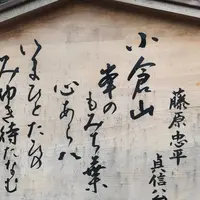 藤原忠平
貞信公
小倉山
峯のもみち葉
心あらハ
いまひとたひの
みゆき待たなむ